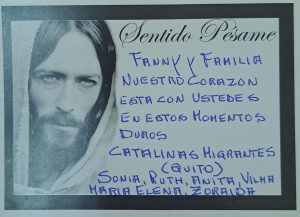 Sentido Pésame
FANNY Y FAMILIA
NUESTRO CORAZON
ESTA CON USTEDES
EN ESTOS MOMENTOS
DUROS
CATALINAS MIGRANTES
(QUITO)
SONIA, RUTH, ANITA, VILMA
MARIA ELENA, ZORAIDA